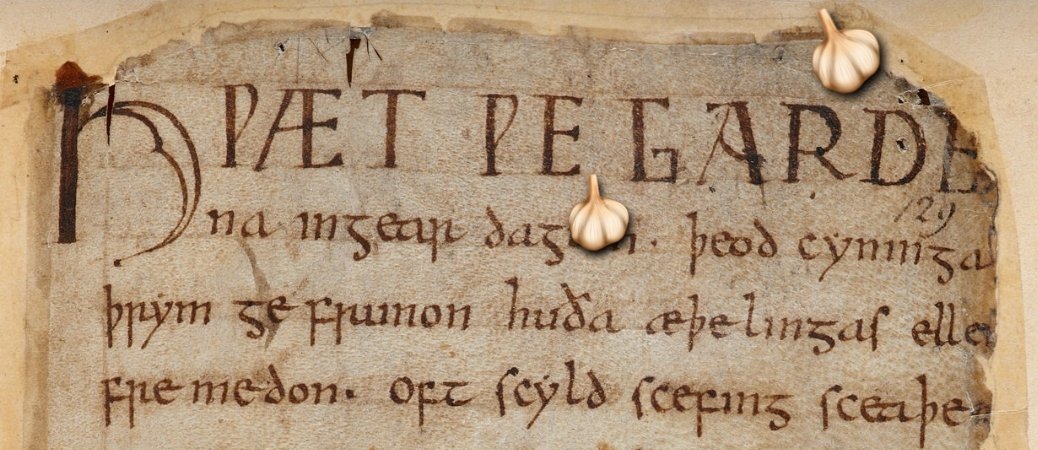 HǷÆT ǷE GARDE
129
na ingear . þeod cyninga
þrym ge frunon huða æþelingas ellen
fre medon. oft scyld scefing sceaþe